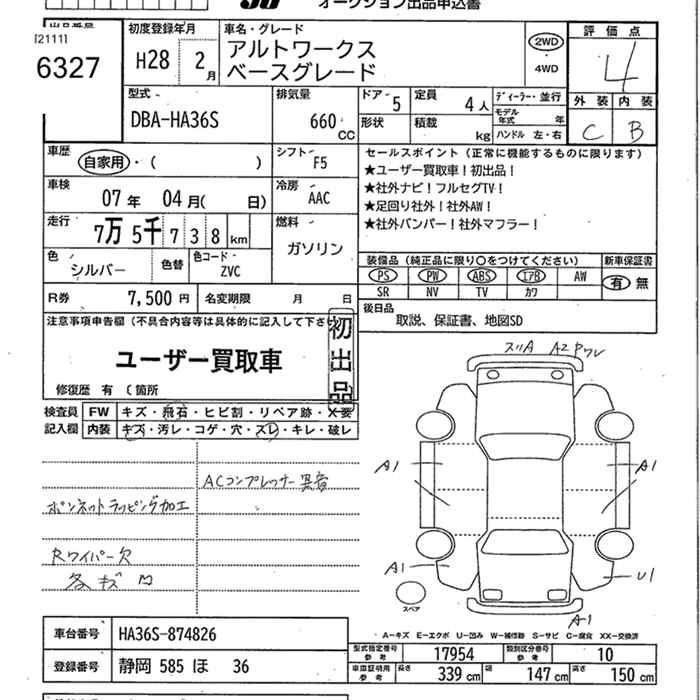 オークション出品申込書
[21111]
6327
初度登録年月
H28 2月
車名・グレード
アルトワークス
ベースグレード
2WD
4WD
評価点
4
外装 内装
C B
型式
DBA-HA36S
排気量
660 CC
ドア 5
形状
定員 4人
積載 kg
ディーラー・並行
モデル年式 年
ハンドル 左・右
車歴 自家用・( )
シフト F5
セールスポイント(正常に機能するものに限ります)
★ユーザー買取車!初出品!
★社外ナビ!フルセグTV!
★足回り社外!社外AW!
★社外バンパー!社外マフラー!
車検 07年 04月( 日)
冷房 AAC
走行 7万5千738km
燃料 ガソリン
色 シルバー 色替
色コード ZVC
装備品(純正品に限り〇をつけてください) 新車保証書
PS PW ABS エアB AW 有 無
SR NV TV カワ
R券 7,500円 名変期限 月 日
後日品
取説、保証書、地図SD
注意事項申告欄(不具合内容等は具体的に記入して下さい
初出品
ユーザー買取車
修復歴 有 〔箇所
検査員記入欄
FW キズ・飛石・ヒビ割・リペア跡・X要
内装 キズ・汚レ・コゲ・穴・スレ・キレ・破レ
ACコンプレッサー異音
ボンネットラッピング加工
Rワイパー欠
各キズ凹
スリA A2 Pワレ
A1 A1
A1 U1
スペア
A1
A-キズ E-エクボ U-凹み W-補修跡 S-サビ C-腐食 XX-交換済
車台番号 HA36S-874826
登録番号 静岡 585 ほ 36
型式指定番号参考 17954 類別区分番号参考 10
車庫証明用参考 長さ 339 cm 幅 147 cm 高さ 150 cm